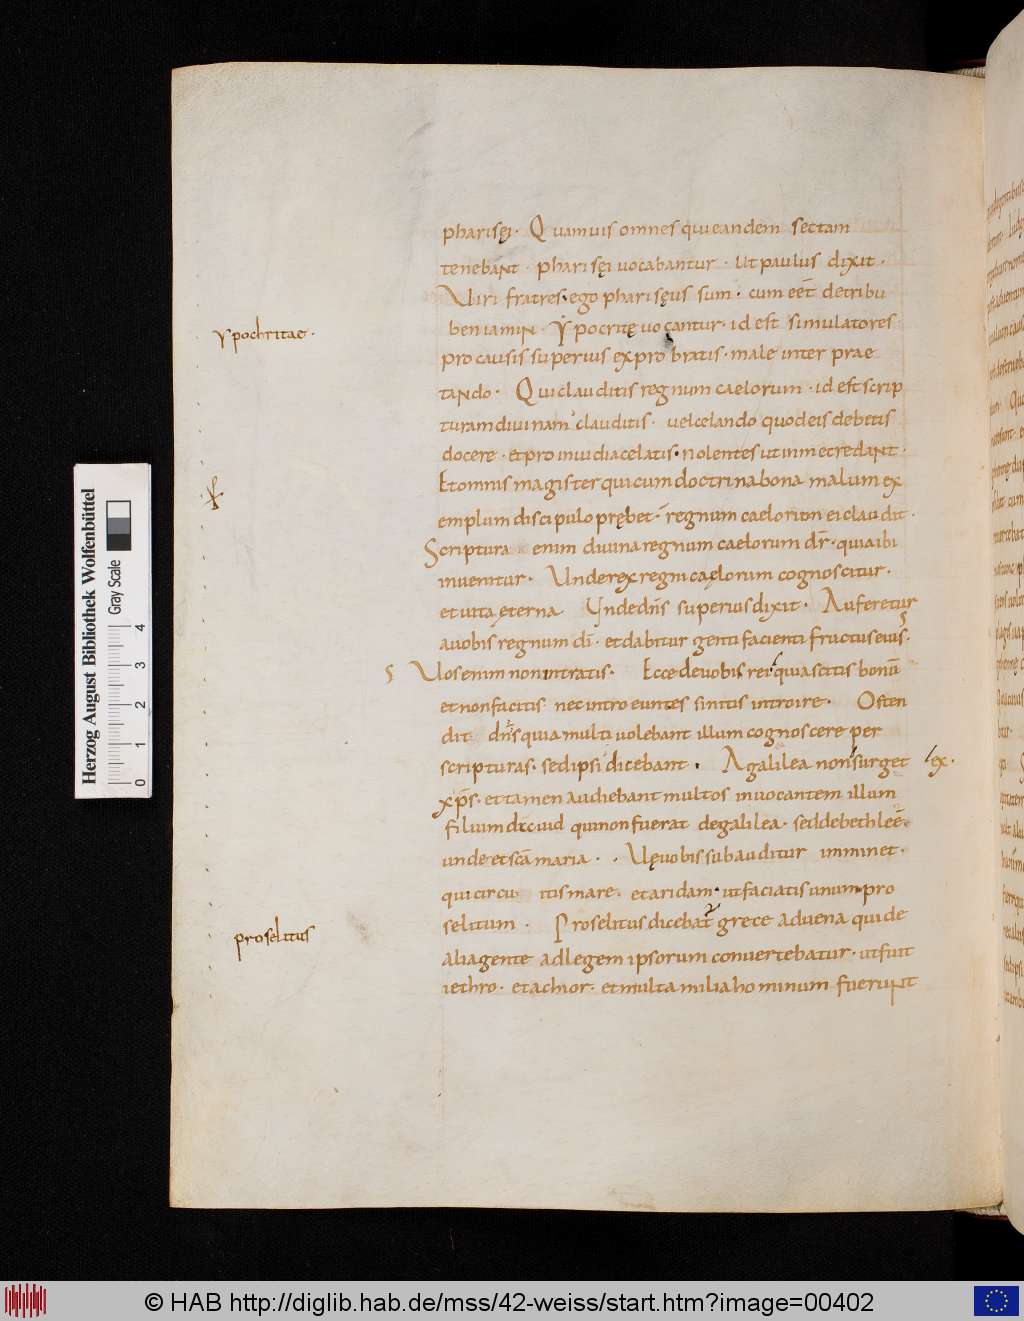 pharisęi· Quamuis omnes qui eandem sectam
tenebant· pharisęi uocabantur· ut paulus dixit·
Uiri fratres· ego pharisęus sum· cum eēt de tribu
beniamin· Ypocritę uocantur· id est simulatores
ypochritae·
pro causis superius exprobratis· male inter prae
tando· Qui clauditis regnum caelorum· id est scrip
turam diuinam clauditis· uel celando quod eis debetis
docere· et pro inuidia celatis· nolentes ut in me credant·
Et omnis magister qui cum doctrina bona malum ex
emplum discipulo prębet· regnum caelorum ei claudit·
Scriptura enim diuina regnum caelorum dr̄· quia ibi
inuenitur· Unde rex regni caelorum cognoscitur·
et uita ęterna Unde dn̄s superius dixit· Auferetur
a uobis regnum dī· et dabitur genti facienti fructus eius·
Uos enim non intratis· Ecce de uobis rei quia scitis bonū
et non facitis nec introeuntes sinitis introire· Osten
dit dn̄s quia multi uolebant illum cognoscere per
scripturas· sed ipsi dicebant· A galilea non surget
lex·
xp̄s· et tamen audiebant multos inuocantem illum
filium dauid qui non fuerat de galilea· sed de bethleē·
unde et scā maria· Uę uobis subauditur imminet·
qui circuitis mare· et aridam· ut faciatis unum pro
selitum· Proselitus dicebat grece aduena qui de
proselitus
alia gente ad legem ipsorum conuertebatur· ut fuit
iethro· et achior· et multa milia hominum fuerunt
Herzog August Bibliothek Wolfenbüttel
Gray Scale
0 1 2 3 4
© HAB http://diglib.hab.de/mss/42-weiss/start.htm?image=00402